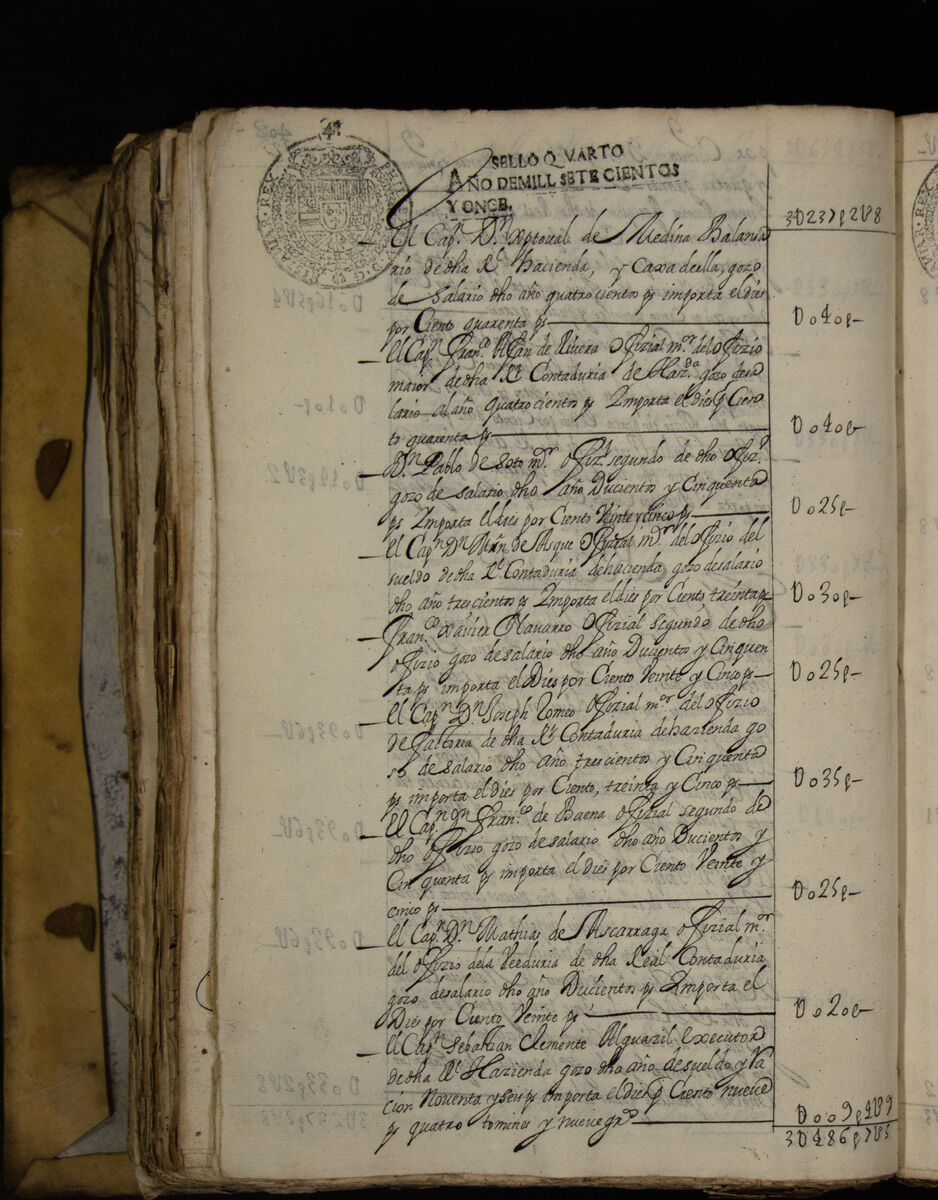 SELLO QVARTO
AÑO DE MILL SETE CIENTOS
Y ONCE.
3U237p2U8
El Capn. Dn. Xptoval de Medina Balansa
rio de dha Rl. hacienda, y Caxa de ella, gozo
de salario dho año quatrocientos ps importa el dies
por Ciento quarenta ps — U040p—
El Capn. Franco. Afan de Rivera Ofizial mor. del ofizio
maior de dha Rl. Contaduria de Hazda. gozo de sa
lario al año quatrocientos ps Importa el dies p Cien
to quarenta ps — U040p—
Dn. Pablo de Soto mor. ofizl. segundo de dho ofizo.
gozo de salario dho año Ducientos y Cinquenta
ps Importa el dies por Ciento Veinte y cinco ps — U025p—
El Capn. Dn. Mrn. de Asque Ofizial mor. del ofizio del
sueldo de dha Rl. Contaduria de hacienda gozo de salario
dho año trescientos ps Importa el dies por Ciento treinta ps U030p—
Franco. Xavier Navarro Ofizial segundo de dho
ofizio gozo de salario dho año Ducientos y Cinquen
ta ps importa el Dies por Ciento Veinte y Cinco ps — U025p—
El Capn. Dn. Joseph Romeo ofizial mor. del ofizio
de factoria de dha Rl. Contaduria de hazienda go
so de salario dho año trescientos y Cinquenta
ps importa el dies por Ciento, treinta y Cinco ps — U035p—
El Capn. Dn. Franco. de Baena ofizial segundo de
dho ofizio gozo de salario dho año Ducientos y
Cinquenta ps importa el dies por Ciento Veinte y
cinco ps — U025p—
El Capn. Dn. Mathias de Ascarraga ofizial mor.
del ofizio de la Veeduria de dha Real Contaduria
gozo de salario dho año Ducientos ps Importa el
Dies por Ciento Veinte ps — U020p—
El Capn. Sebastian Clemente Alguazil Executor
de dha Rl. Hazienda gozo dho año de sueldo y Ra
cion Noventa y seis ps importa el dies p Ciento nueve
ps quatro tomines y nueve grs. — U009p4U9
3U486p7U5